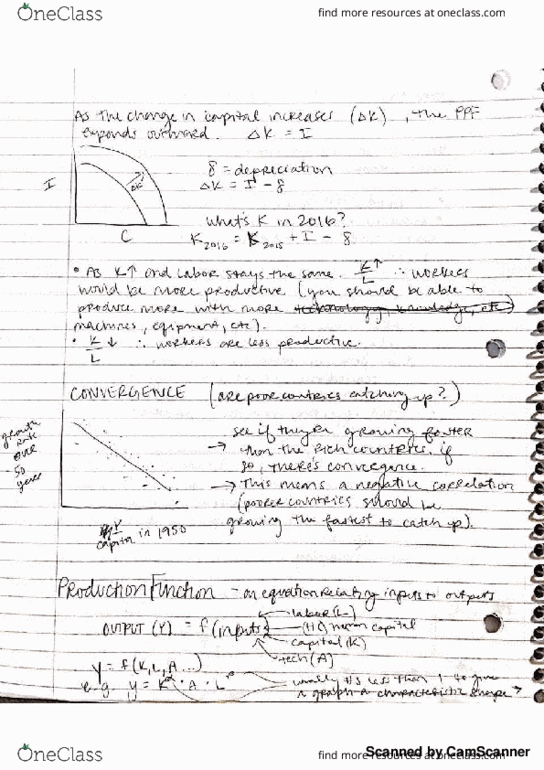 OneClass
find more resources at oneclass.com
As the change in capital increases (ΔK), the PPF
expands outward. ΔK = I
I
ΔK
C
δ = depreciation
ΔK = I - δ
What's K in 2016?
K2016 = K2015 + I - δ
• As K↑ and labor stays the same. K/L ↑ ∴ workers
would be more productive (you should be able to
produce more with more technology, knowledge, etc)
machines, equipment, etc).
• K/L ↓ ∴ workers are less productive.
CONVERGENCE (are poor contries catching up?)
growth
rate
over
50
years
capita in 1950
see if they're growing faster
→ than the rich countries. if
so, there's convergence.
→ This means a negative correlation
(poorer countries should be
growing the fastest to catch up).
Production Function - an equation relating inputs to outputs
OUTPUT (Y) = f(inputs)
labor (L)
(H) human capital
capital (K)
tech (A)
y = f(K, L, A...)
e.g. y = K · A · L
usually it's less than 1 to give
a graph a characteristic shape
Scanned by CamScanner
OneClass
find more resources at oneclass.com